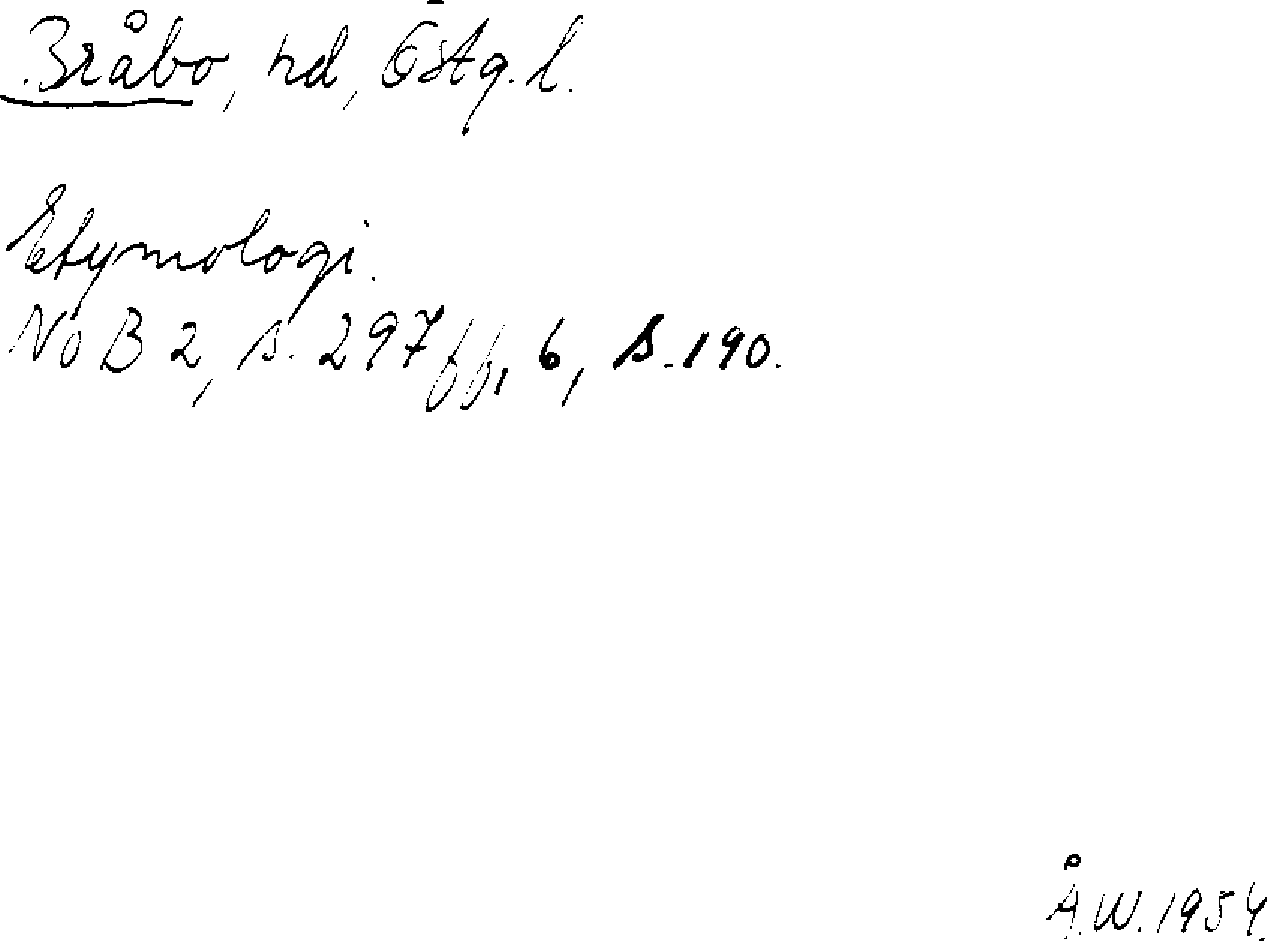 Bråbo, hd, Östg. l.
Etymologi.
NoB 2, s. 297 ff, 6, s. 190.
Å.W. 1954.